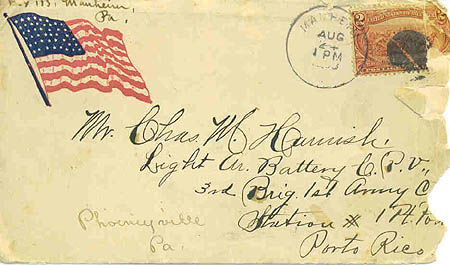 Box 115, Manheim,
Pa.
MANHEIM
AUG
24
1 PM
2
2
Mr. Chas. M Harnish,
Light Ar. Battery C. P. V.,
3rd Brig. 1st Army C
Station # 1
Porto Rico
Phoenixville
Pa.